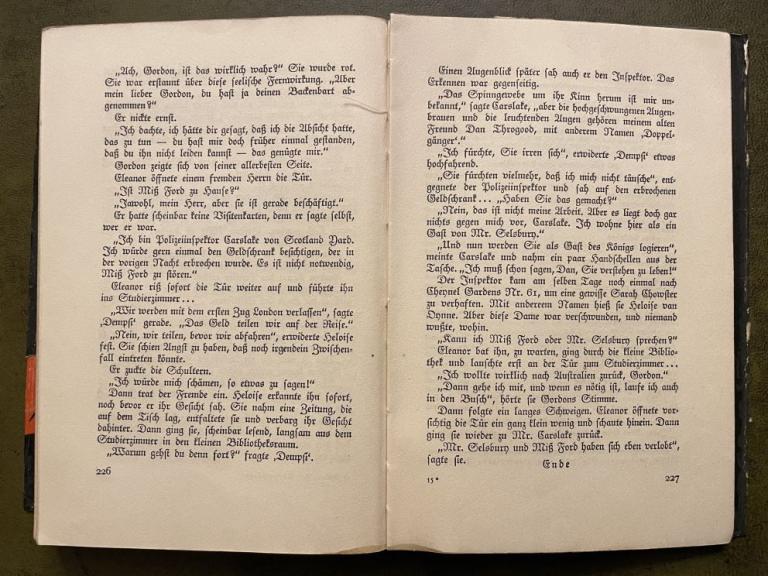 „Ach, Gordon, ist das wirklich wahr?“ Sie wurde rot.
Sie war erstaunt über diese seelische Fernwirkung. „Aber
mein lieber Gordon, du hast ja deinen Backenbart ab-
genommen?“
Er nickte ernst.
„Ich dachte, ich hätte dir gesagt, daß ich die Absicht hatte,
das zu tun — du hast mir doch früher einmal gestanden,
daß du ihn nicht leiden kannst — das genügte mir.“
Gordon zeigte sich von seiner allerbesten Seite.
Eleanor öffnete einem fremden Herrn die Tür.
„Ist Miß Ford zu Hause?“
„Jawohl, mein Herr, aber sie ist gerade beschäftigt.“
Er hatte scheinbar keine Visitenkarten, denn er sagte selbst,
wer er war.
„Ich bin Polizeiinspektor Carslake von Scotland Yard.
Ich würde gern einmal den Geldschrank besichtigen, der in
der vorigen Nacht erbrochen wurde. Es ist nicht notwendig,
Miß Ford zu stören.“
Eleanor riß sofort die Tür weiter auf und führte ihn
ins Studierzimmer...
„Wir werden mit dem ersten Zug London verlassen“, sagte
‚Dempsi‘ gerade. „Das Geld teilen wir auf der Reise.“
„Nein, wir teilen, bevor wir abfahren“, erwiderte Heloise
fest. Sie schien Angst zu haben, daß noch irgendein Zwischen-
fall eintreten könnte.
Er zuckte die Schultern.
„Ich würde mich schämen, so etwas zu sagen!“
Dann trat der Fremde ein. Heloise erkannte ihn sofort,
noch bevor er ihr Gesicht sah. Sie nahm eine Zeitung, die
auf dem Tisch lag, entfaltete sie und verbarg ihr Gesicht
dahinter. Dann ging sie, scheinbar lesend, langsam aus dem
Studierzimmer in den kleinen Bibliotheksraum.
„Warum gehst du denn fort?“ fragte ‚Dempsi‘.
226
Einen Augenblick später sah auch er den Inspektor. Das
Erkennen war gegenseitig.
„Das Spinngewebe um ihr Kinn herum ist mir un-
bekannt,“ sagte Carslake, „aber die hochgeschwungenen Augen-
brauen und die leuchtenden Augen gehören meinem alten
Freund Dan Throgood, mit anderem Namen ‚Doppel-
gänger‘.“
„Ich fürchte, Sie irren sich“, erwiderte ‚Dempsi‘ etwas
hochfahrend.
„Sie fürchten vielmehr, daß ich mich nicht täusche“, ent-
gegnete der Polizeiinspektor und sah auf den erbrochenen
Geldschrank... „Haben Sie das gemacht?“
„Nein, das ist nicht meine Arbeit. Aber es liegt doch gar
nichts gegen mich vor, Carslake. Ich wohne hier als ein
Gast von Mr. Selsbury.“
„Und nun werden Sie als Gast des Königs logieren“,
meinte Carslake und nahm ein paar Handschellen aus der
Tasche. „Ich muß schon sagen, Dan, Sie verstehen zu leben!“
Der Inspektor kam am selben Tage noch einmal nach
Cheynel Gardens Nr. 61, um eine gewisse Sarah Chowster
zu verhaften. Mit anderem Namen hieß sie Heloise van
Oynne. Aber diese Dame war verschwunden, und niemand
wußte, wohin.
„Kann ich Miß Ford oder Mr. Selsbury sprechen?“
Eleanor bat ihn, zu warten, ging durch die kleine Biblio-
thek und lauschte erst an der Tür zum Studierzimmer...
„Ich wollte wirklich nach Australien zurück, Gordon.“
„Dann gehe ich mit, und wenn es nötig ist, laufe ich auch
in den Busch“, hörte sie Gordons Stimme.
Dann folgte ein langes Schweigen. Eleanor öffnete vor-
sichtig die Tür ein ganz klein wenig und schaute hinein. Dann
ging sie wieder zu Mr. Carslake zurück.
„Mr. Selsbury und Miß Ford haben sich eben verlobt“,
sagte sie.
Ende
15*
227